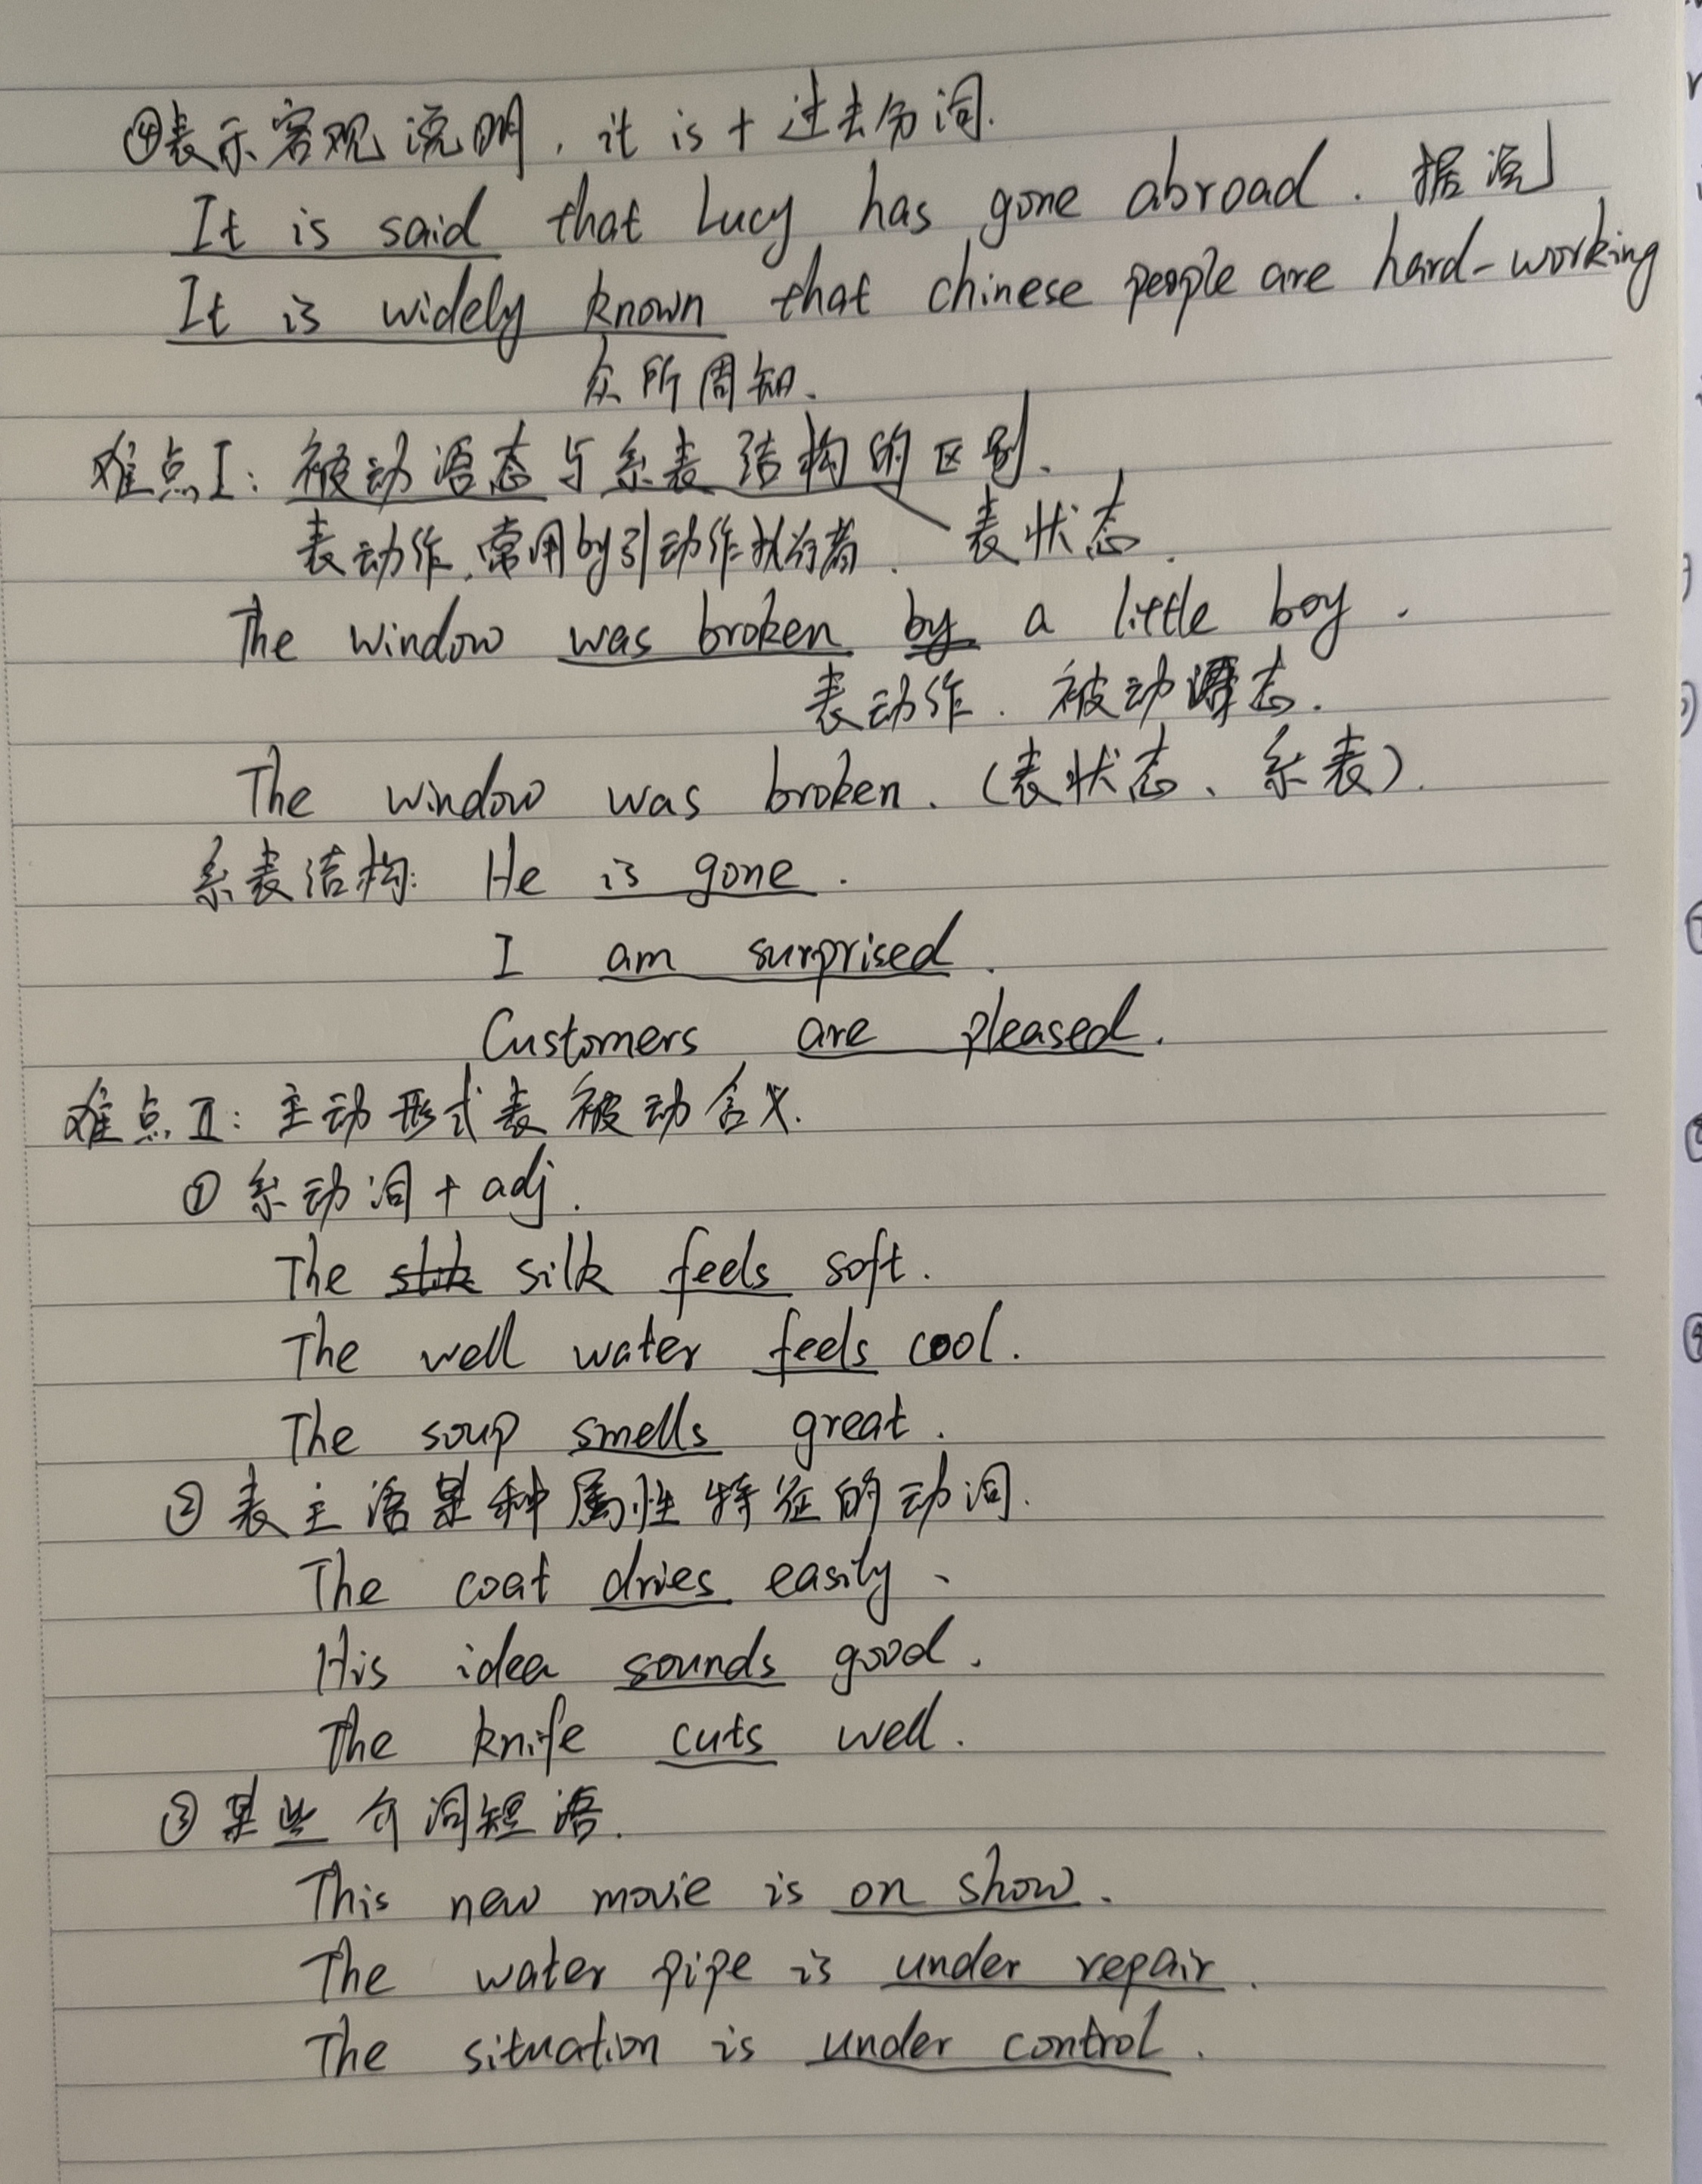 ④表示客观说明，it is + 过去分词.
It is said that Lucy has gone abroad. 据说
It is widely known that chinese people are hard-working
众所周知.
难点I: 被动语态与系表结构的区别.
表动作,常用by引动作执行者. 表状态.
The window was broken by a little boy.
表动作. 被动语态.
The window was broken.(表状态、系表).
系表结构: He is gone.
I am surprised.
Customers are pleased.
难点II: 主动形式表被动含义.
① 系动词 + adj.
The silk feels soft.
The well water feels cool.
The soup smells great.
② 表主语某种属性特征的动词.
The coat dries easily、
His idea sounds good.
The knife cuts well.
③ 某些介词短语.
This new movie is on show.
The water pipe is under repair.
The situation is under control.